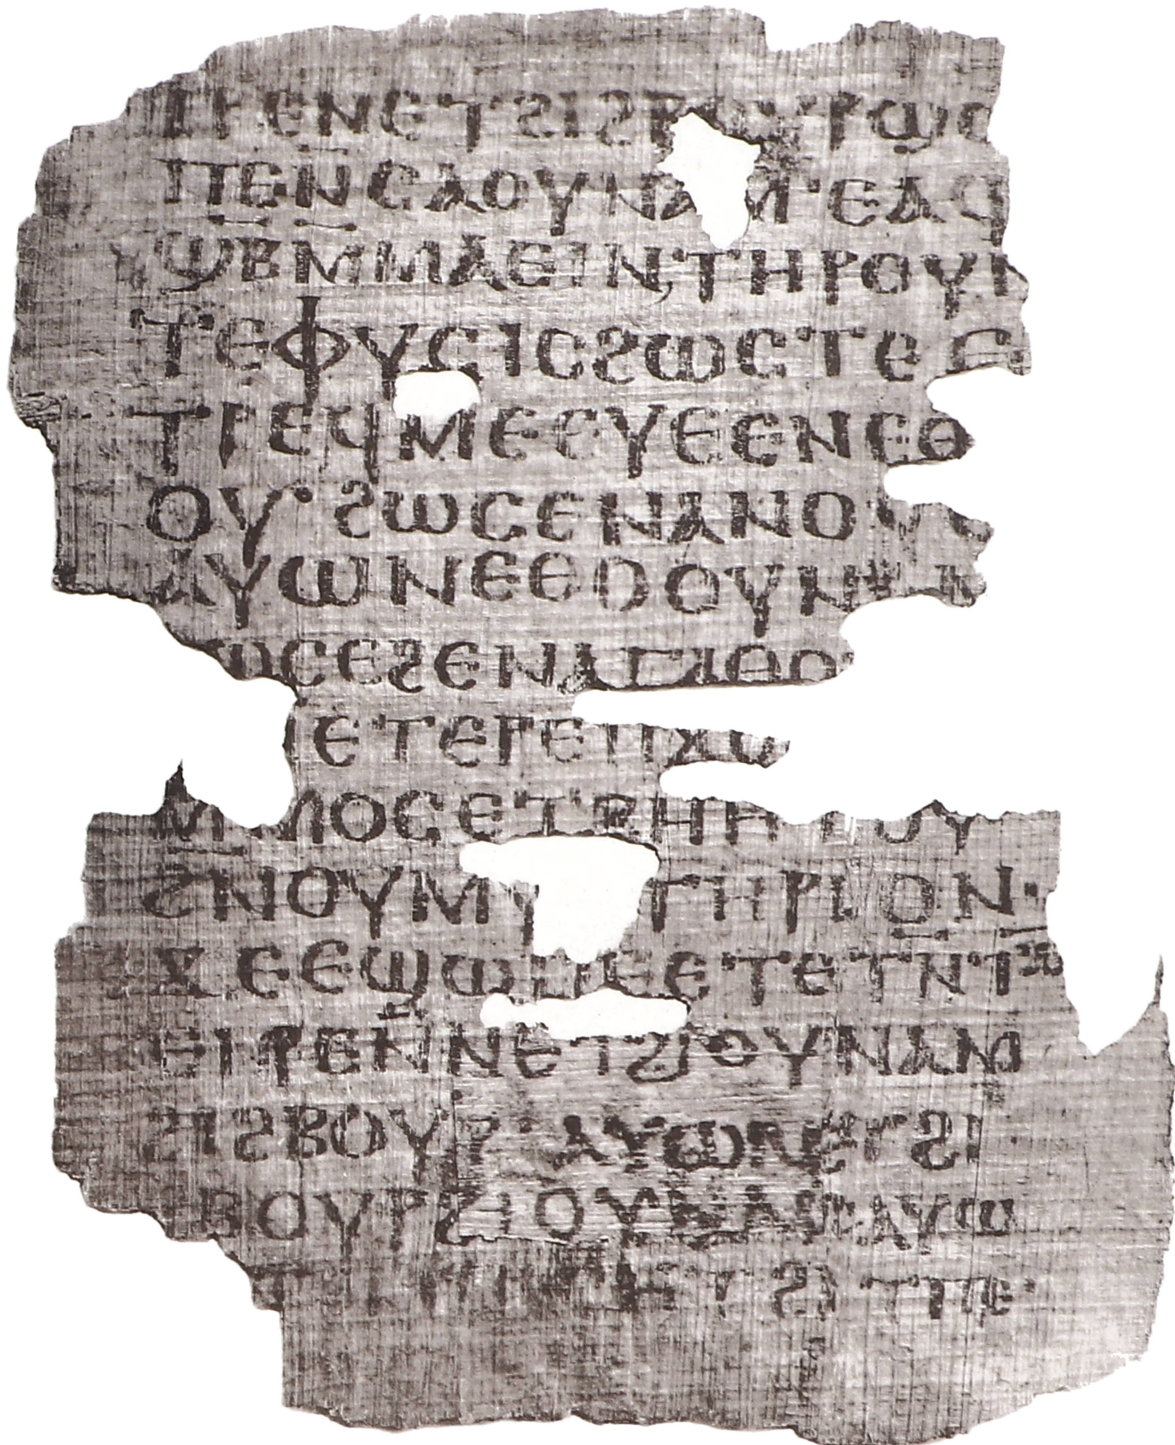 ⲓⲣⲉⲛⲉⲧϩⲓϩⲃⲟⲩⲣϩⲱⲥ
ⲡⲉⲛ̄ⲥⲁⲟⲩⲛⲁⲙ·ⲉⲁϥ
ϣⲃ̄ⲙ̄ⲙⲁⲉⲓⲛⲧⲏⲣⲟⲩⲛ
ⲧⲉⲫⲩⲥⲓⲥϩⲱⲥⲧⲉⲥ
ⲧⲣⲉϥⲙⲉⲉⲩⲉⲉⲛⲉⲑ
ⲟⲩ·ϩⲱⲥⲉⲛⲁⲛⲟⲩ
ⲁⲩⲱⲛⲉⲑⲟⲟⲩⲛ
ϩⲱⲥⲉϩⲉⲛⲁⲅⲁⲑⲟ
ⲉⲧⲉⲣⲉⲡϫⲟ
ⲙⲙⲟⲥⲉⲧⲃⲏⲏⲧⲟⲩ
ϩⲛⲟⲩⲙⲩⲧⲏⲣⲓⲟⲛ·
ϫⲉⲉϣⲱⲡⲉⲉⲧⲉⲧⲛ̄ⲧⲙ̄
ⲉⲓⲣⲉⲛ̄ⲛⲉⲧϩⲓⲟⲩⲛⲁⲙ
ϩⲓϩⲃⲟⲩⲣ·ⲁⲩⲱⲛⲉⲧϩⲓ
ⲃⲟⲩⲣϩⲓⲟⲩⲛⲁⲙ·ⲁⲩⲱ
ϩⲓⲧⲡⲉ·